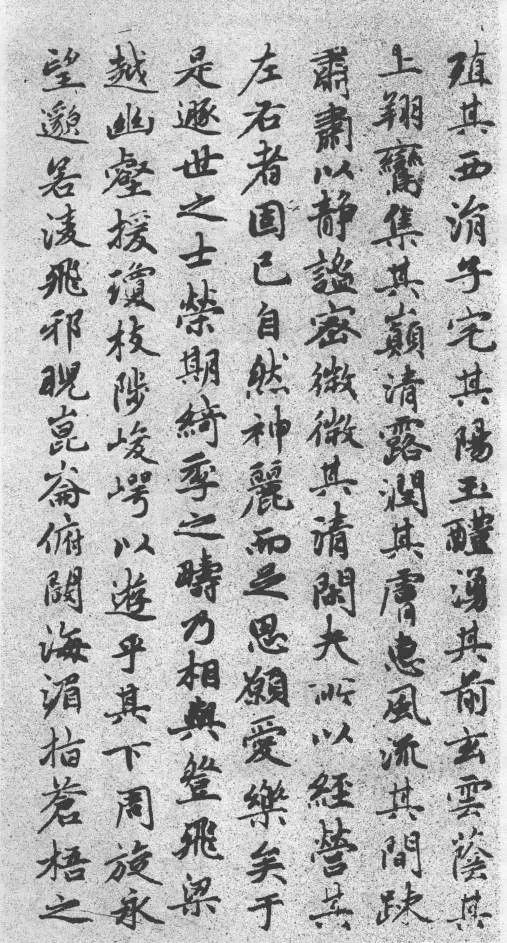 殖其西涓子宅其陽玉醴湧其前玄雲蔭其
上翔鸞集其巔清露潤其膚惠風流其間竦
肅肅以静謐密微微其清閑夫所以經營其
左右者固已自然神麗而足思願愛樂矣于
是遯世之士榮期綺季之疇乃相與登飛梁
越幽壑援瓊枝陟峻崿以遊乎其下周旋永
望邈若淩飛邪睨崑崙俯闚海湄指蒼梧之